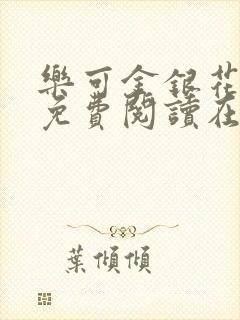 樂可金銀花
免費閱讀在
葉傾傾